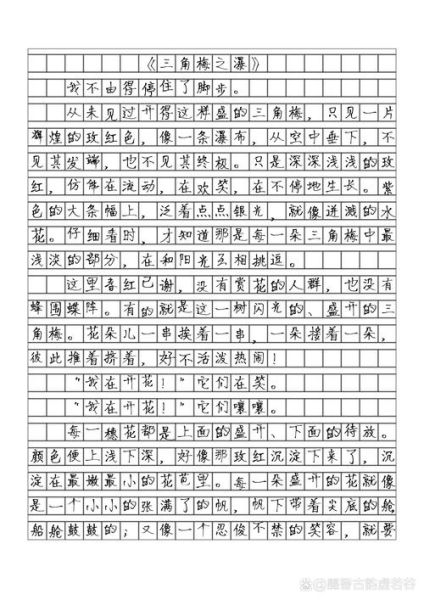 《三角梅之瀑》
我不由得停住了脚步。
从未见过开得这样盛的三角梅，只见一片
辉煌的玫红色，像一条瀑布，从空中垂下，不
见其发端，也不见其终极。只是深深浅浅的玫
红，仿佛在流动，在欢笑，在不停地生长。紫
色的大条幅上，泛着点点银光，就像迸溅的水
花。仔细看时，才知道那是每一朵三角梅中最
浅淡的部分，在和阳光互相挑逗。
这里春红已谢，没有赏花的人群，也没有
蜂围蝶阵。有的就是这一树闪光的、盛开的三
角梅。花朵儿一串挨着一串，一朵接着一朵，
彼此推着挤着，好不活泼热闹！
“我在开花！”它们在笑。
“我在开花！”它们嚷嚷。
每一穗花都是上面的盛开、下面的待放。
颜色便上浅下深，好像那玫红沉淀下来了，沉
淀在最嫩最小的花苞里。每一朵盛开的花就像
是一个小小的张满了的帆，帆下带着尖底的舱，
船舱鼓鼓的；又像一个忍俊不禁的笑容，就要
@愚鲁古韵虚若谷